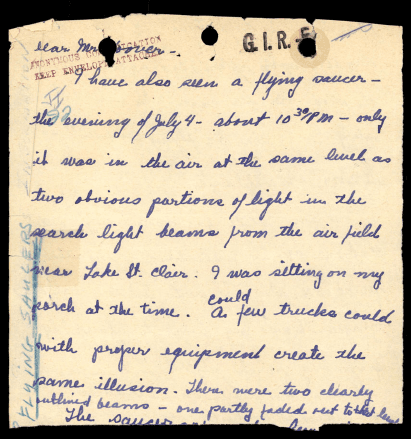 G.I.R.-5
Dear Mr. Hoover -
ANONYMOUS COMMUNICATION
KEEP ENVELOPE ATTACHED
I have also seen a flying saucer -
the evening of July 4 - about 10 30/PM - only
it was in the air at the same level as
two obvious portions of light in the
search light beams from the air field
near Lake St. Clair. I was sitting on my
porch at the time. could A few trucks could
with proper equipment create the
same illusion. There were two clearly
outlined beams - one partly faded out to that level
The saucer
FLYING SAUCERS